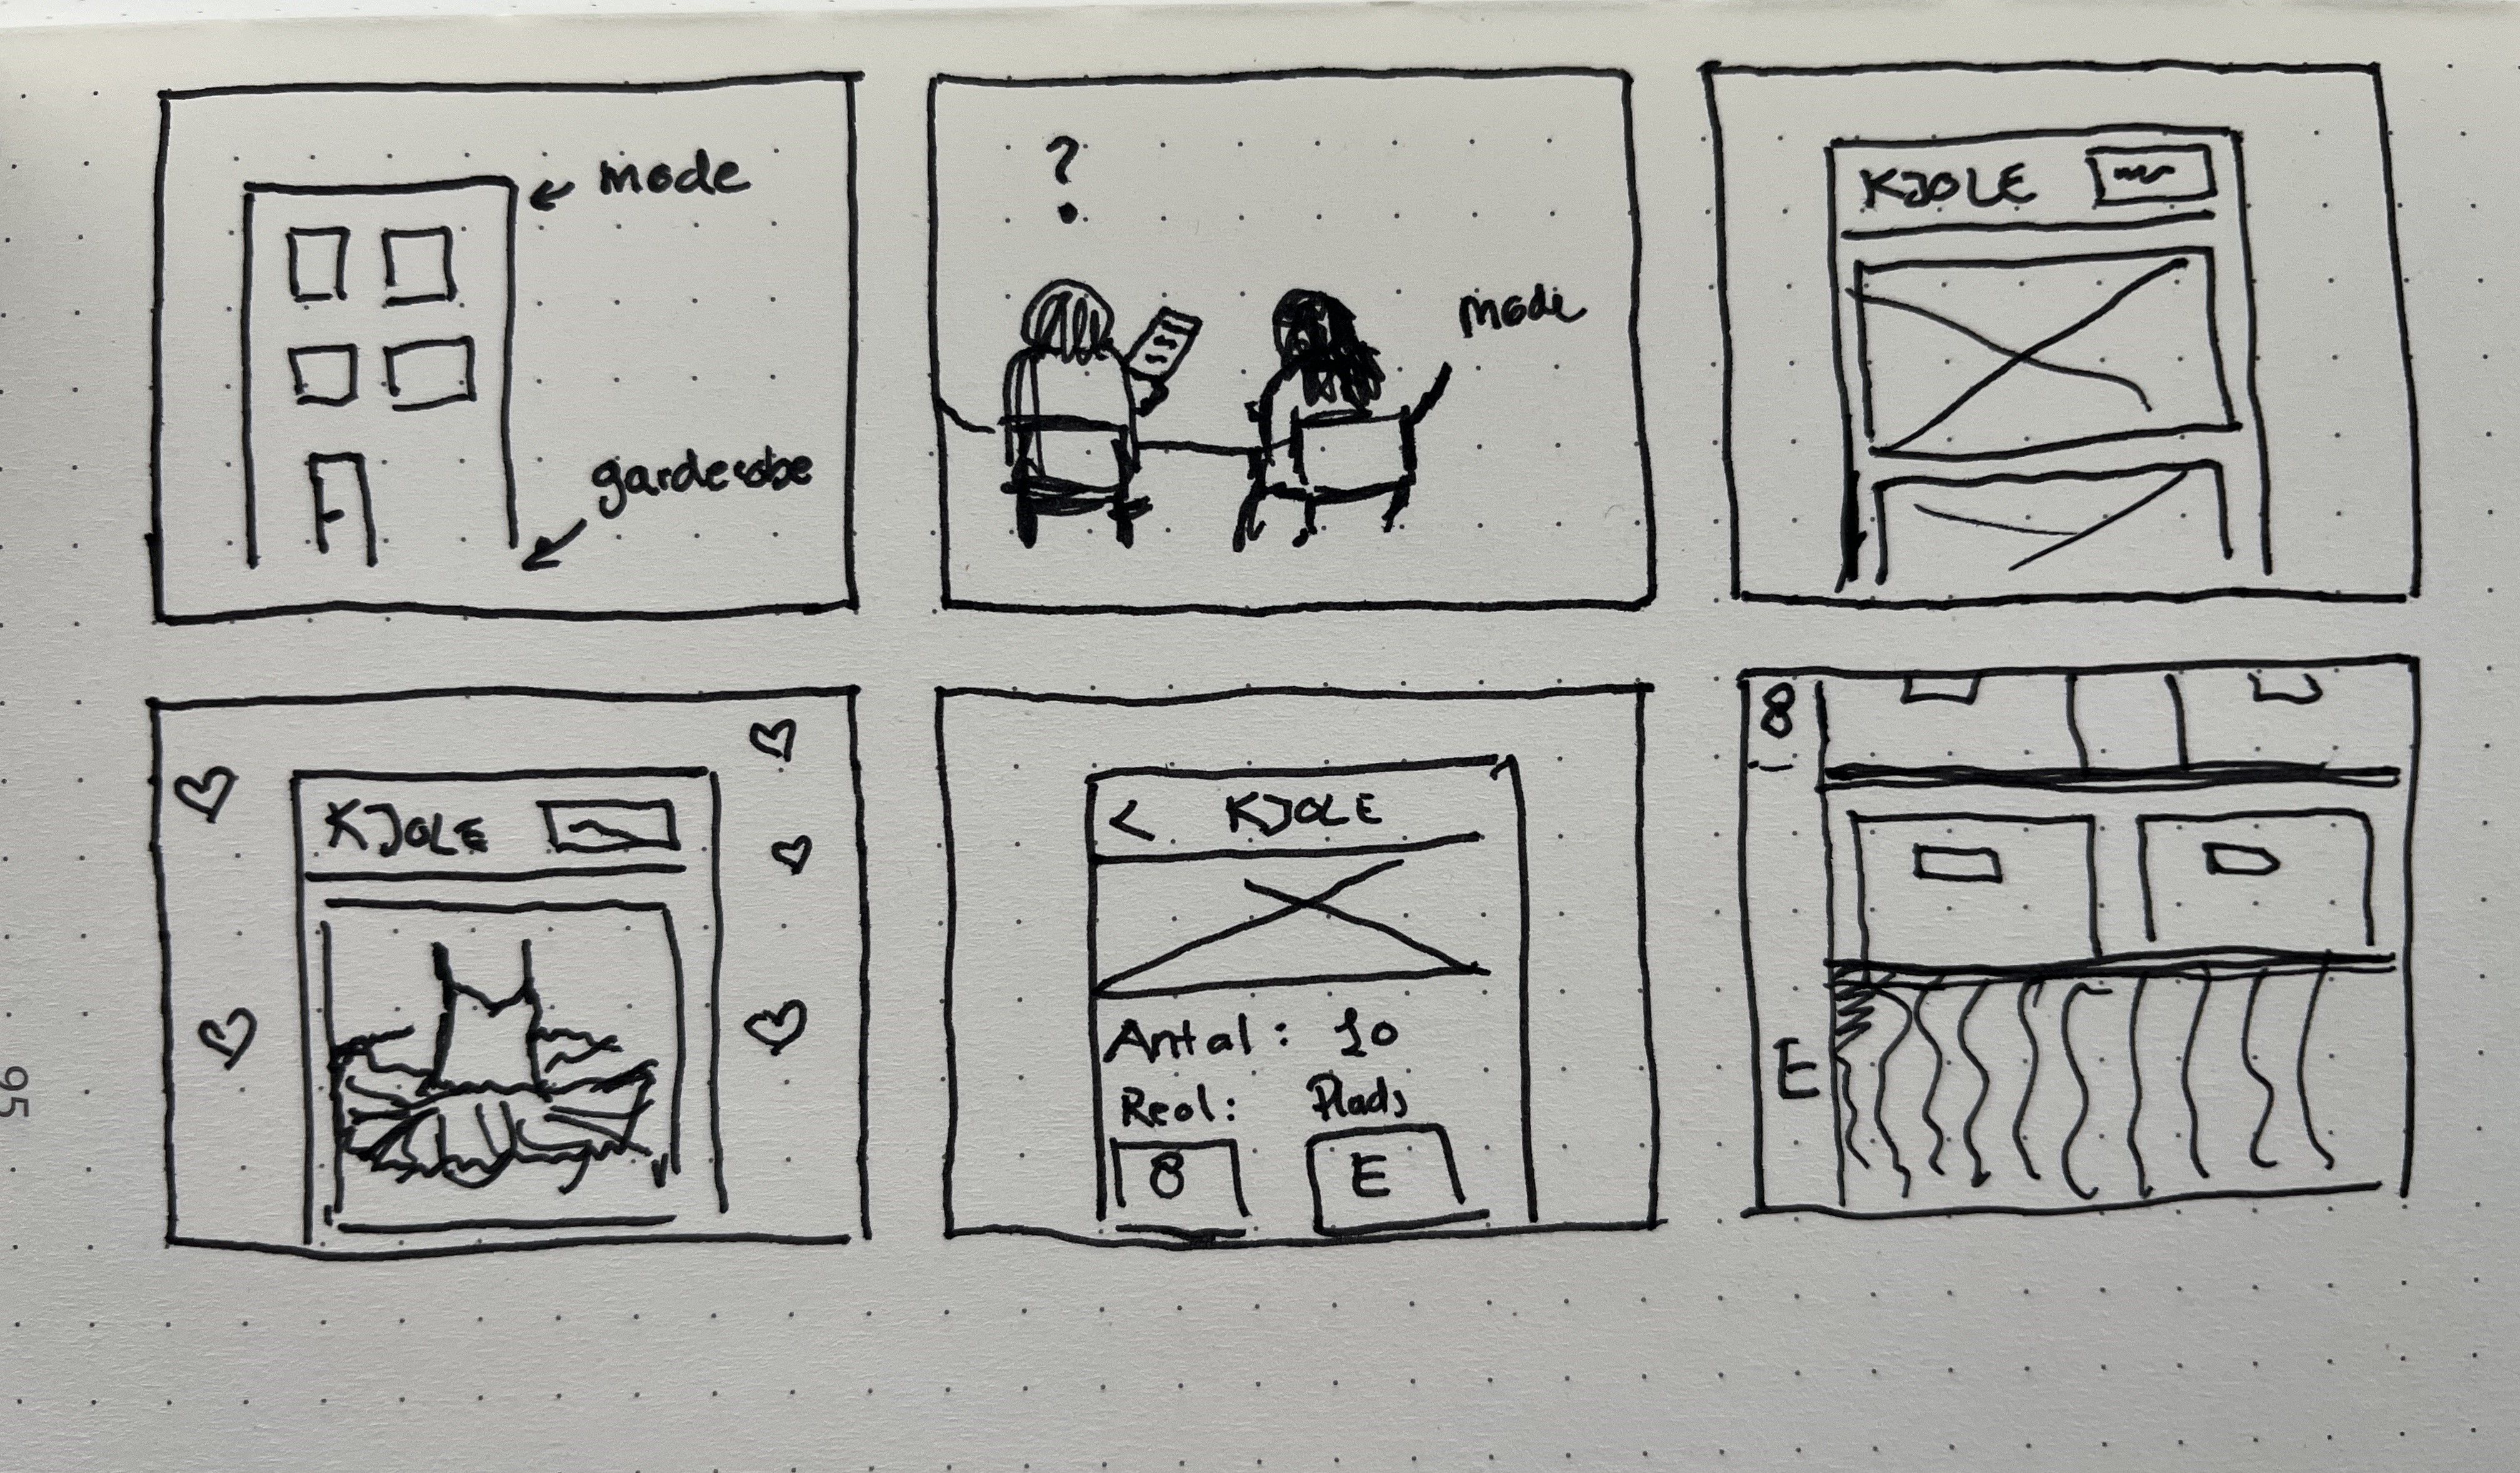 mode
garderobe
?
mode
KJOLE
KJOLE
< KJOLE
Antal: 10
Reol: Plads
8 E
8
E
95